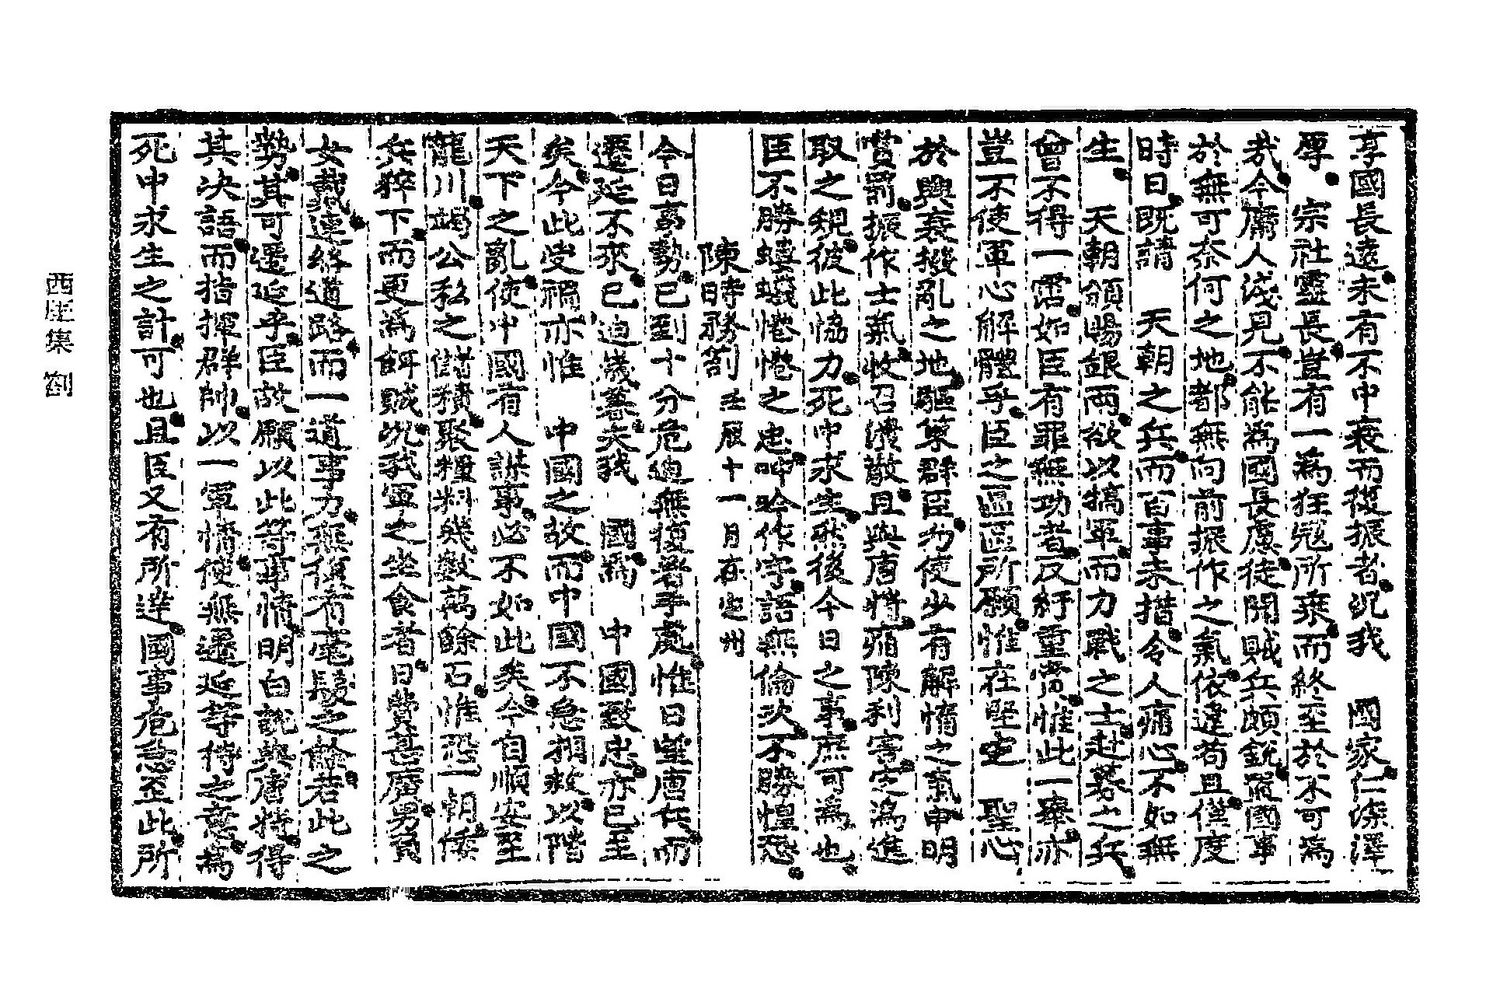 享國長遠未有不中衰而復振者况我 國家仁深澤
厚 宗社靈長豈有一爲狂冦所乘而終至於不可爲
哉今庸人淺見不能爲國長慮徒聞賊兵頗銳罷國事
於無可奈何之地都無向前振作之氣依違苟且僅度
時日旣請 天朝之兵而百事未措令人痛心不如無
生 天朝頒賜銀兩欲以犒軍而力戰之士赴募之兵
曾不得一霑如臣有罪無功者反紆重賞惟此一擧亦
豈不使軍心解體乎臣之區區所願惟在堅定 聖心
於興衰撥亂之地驅策群臣勿使少有解惰之氣申明
賞罰振作士氣收召潰散且與唐將痛陳利害定爲進
取之規彼此恊力死中求生然後今日之事庶可爲也
臣不勝螻蟻惓惓之忠呻吟作字語無倫次不勝惶恐
陳時務箚 壬辰十一月在定州
今日事勢已到十分危迫無復着手處惟日望唐兵而
遷延不來已迫歲暮夫我 國爲 中國致忠亦已至
矣今此受禍亦惟 中國之故而中國不急相救以階
天下之亂使中國有人謀事必不如此矣今自順安至
龍川竭公私之儲積聚糧料幾數萬餘石惟恐一朝倭
兵猝下而更爲餌賊况我軍之坐食者日費甚廣男負
女戴連絡道路而一道事力無復有毫髮之餘若此之
勢其可遷延乎臣故願以此等事情明白說與唐將得
其决語而指揮群帥以一軍情使無遷延等待之意爲
死中求生之計可也且臣又有所達國事危急至此所
西厓集 箚